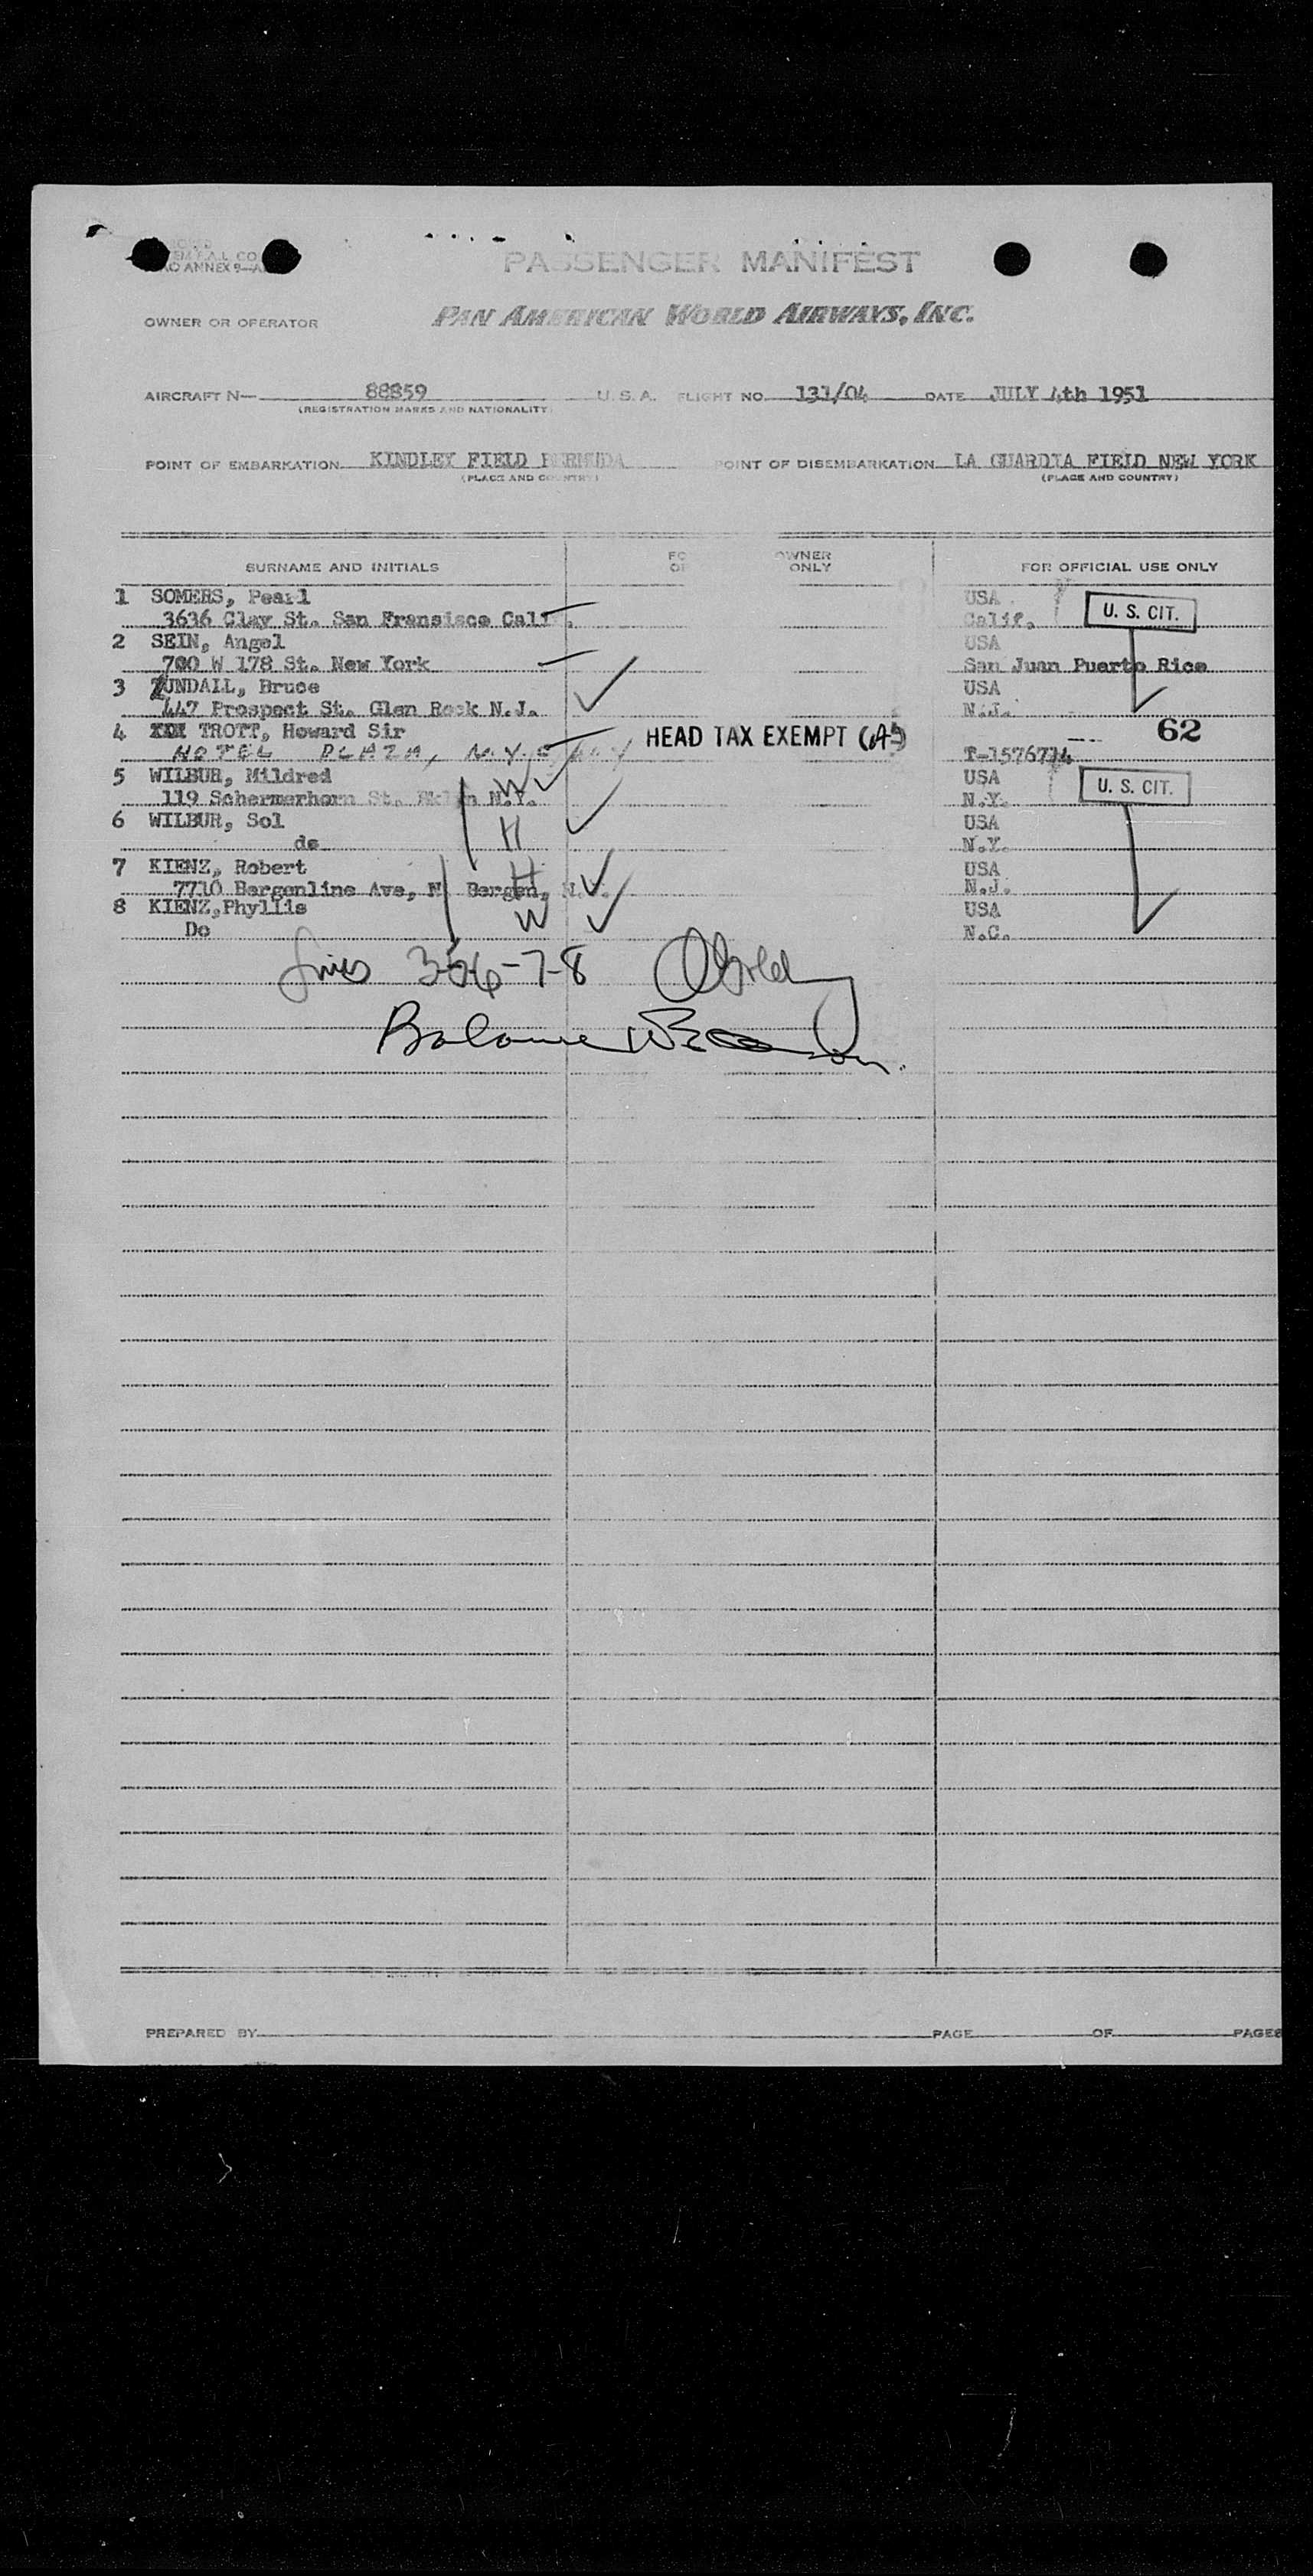 PASSENGER MANIFEST
OWNER OR OPERATOR PAN AMERICAN WORLD AIRWAYS, INC.
AIRCRAFT N— 88859 U.S.A. FLIGHT NO. 131/04 DATE JULY 4th 1951
(REGISTRATION MARKS AND NATIONALITY)
POINT OF EMBARKATION KINDLEY FIELD BERMUDA POINT OF DISEMBARKATION LA GUARDIA FIELD NEW YORK
(PLACE AND COUNTRY) (PLACE AND COUNTRY)
SURNAME AND INITIALS OWNER ONLY FOR OFFICIAL USE ONLY
1 SOMERS, Pearl USA
3636 Clay St. San Fransisco Calif. Calif. U. S. CIT.
2 SEIN, Angel USA
700 W 178 St. New York San Juan Puerto Rico
3 ZUNDALL, Bruce USA
447 Prospect St. Glen Rock N.J. N.J.
4 TROTT, Howard Sir HEAD TAX EXEMPT 62
HOTEL PLAZA, N.Y.C. T-1576714
5 WILBUR, Mildred W USA U. S. CIT.
119 Schermerhorn St. Bklyn N.Y. N.Y.
6 WILBUR, Sol H USA
do N.Y.
7 KIENZ, Robert H USA
7710 Bergenline Ave, N. Bergen, N.J. N.J.
8 KIENZ, Phyllis W USA
Do N.C.
Lines 3-5-6-7-8
Balance
PREPARED BY PAGE OF PAGES